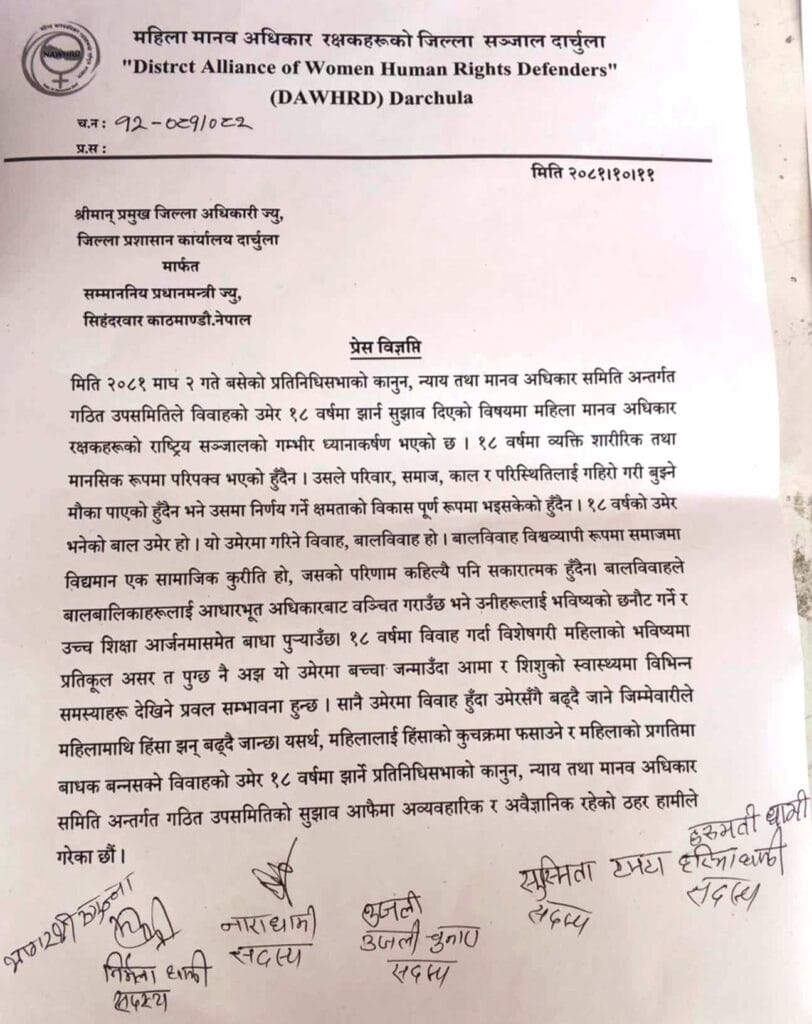 NAWHRD
महिला मानव अधिकार रक्षकहरूको जिल्ला सञ्जाल दार्चुला
"Distrct Alliance of Women Human Rights Defenders"
(DAWHRD) Darchula
च.न: १२-०८१/०८२
प्र.स :
मिति २०८१।१०।११
श्रीमान् प्रमुख जिल्ला अधिकारी ज्यु,
जिल्ला प्रशासान कार्यालय दार्चुला
मार्फत
सम्माननिय प्रधानमन्त्री ज्यु,
सिहंदरवार काठमाण्डौ.नेपाल
प्रेस विज्ञप्ति
मिति २०८१ माघ २ गते बसेको प्रतिनिधिसभाको कानुन, न्याय तथा मानव अधिकार समिति अन्तर्गत
गठित उपसमितिले विवाहको उमेर १८ वर्षमा झार्न सुझाव दिएको विषयमा महिला मानव अधिकार
रक्षकहरूको राष्ट्रिय सञ्जालको गम्भीर ध्यानाकर्षण भएको छ । १८ वर्षमा व्यक्ति शारीरिक तथा
मानसिक रूपमा परिपक्व भएको हुँदैन । उसले परिवार, समाज, काल र परिस्थितिलाई गहिरो गरी बुझ्ने
मौका पाएको हुँदैन भने उसमा निर्णय गर्ने क्षमताको विकास पूर्ण रूपमा भइसकेको हुँदैन । १८ वर्षको उमेर
भनेको बाल उमेर हो । यो उमेरमा गरिने विवाह, बालविवाह हो । बालविवाह विश्वव्यापी रूपमा समाजमा
विद्यमान एक सामाजिक कुरीति हो, जसको परिणाम कहिल्यै पनि सकारात्मक हुँदैन। बालविवाहले
बालबालिकाहरूलाई आधारभूत अधिकारबाट वञ्चित गराउँछ भने उनीहरूलाई भविष्यको छनौट गर्ने र
उच्च शिक्षा आर्जनमासमेत बाधा पुऱ्याउँछ। १८ वर्षमा विवाह गर्दा विशेषगरी महिलाको भविष्यमा
प्रतिकूल असर त पुग्छ नै अझ यो उमेरमा बच्चा जन्माउँदा आमा र शिशुको स्वास्थ्यमा विभिन्न
समस्याहरू देखिने प्रवल सम्भावना हुन्छ । सानै उमेरमा विवाह हुँदा उमेरसँगै बढ्दै जाने जिम्मेवारीले
महिलामाथि हिंसा झन् बढ्दै जान्छ। यसर्थ, महिलालाई हिंसाको कुचक्रमा फसाउने र महिलाको प्रगतिमा
बाधक बन्नसक्ने विवाहको उमेर १८ वर्षमा झार्ने प्रतिनिधिसभाको कानुन, न्याय तथा मानव अधिकार
समिति अन्तर्गत गठित उपसमितिको सुझाव आफैमा अव्यवहारिक र अवैज्ञानिक रहेको ठहर हामीले
गरेका छौं ।
निर्मला धामी
सदस्य
नाराधामी
सदस्य
उजली
सदस्य
सुस्मिता टमटा
सदस्य
धामी
सदस्य